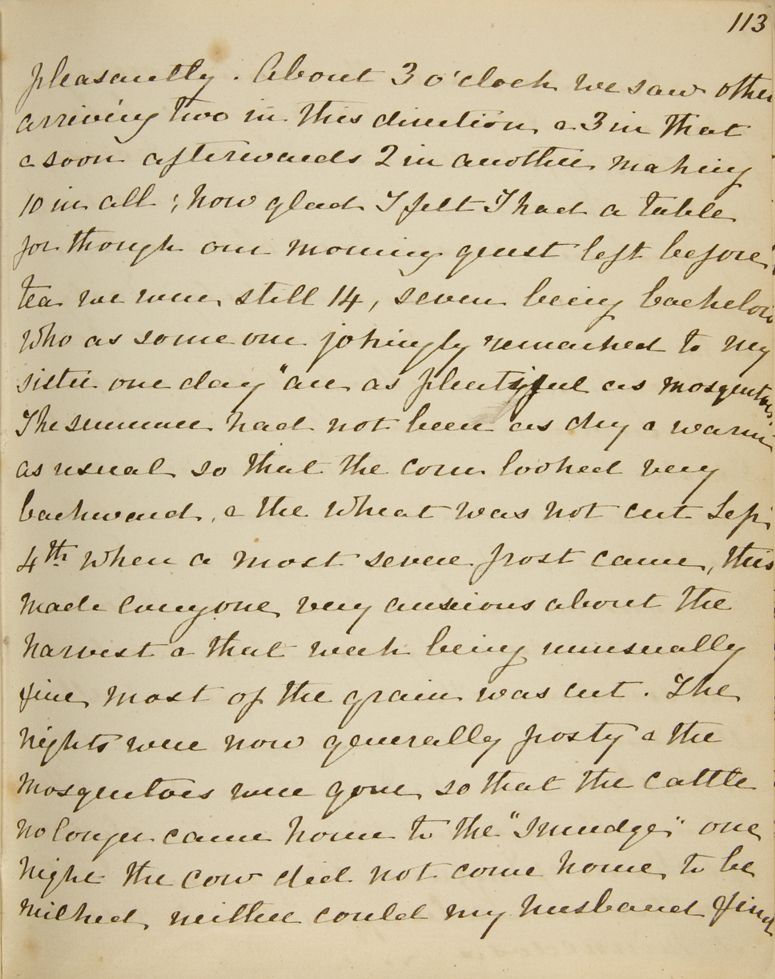 113
pleasantly. About 3 o'clock we saw other
arriving two in this direction & 3 in that
& soon afterwards 2 in another making
10 in all; how glad I felt I had a table
for though our morning guest left before
tea we were still 14, seven being bachelors
who as some one jokingly remarked to my
sister one day "are as plentiful as mosquitoes.
The summer had not been as dry & warm
as usual so that the corn looked very
backward, & the wheat was not cut Sep.
4th when a most severe frost came, this
made everyone very anxious about the
harvest & that week being unusually
fine most of the grain was cut. The
nights were now generally frosty & the
mosquitoes were gone so that the cattle
no longer came home to the "smudge" one
night the cow did not come home to be
milked, neither could my husband find